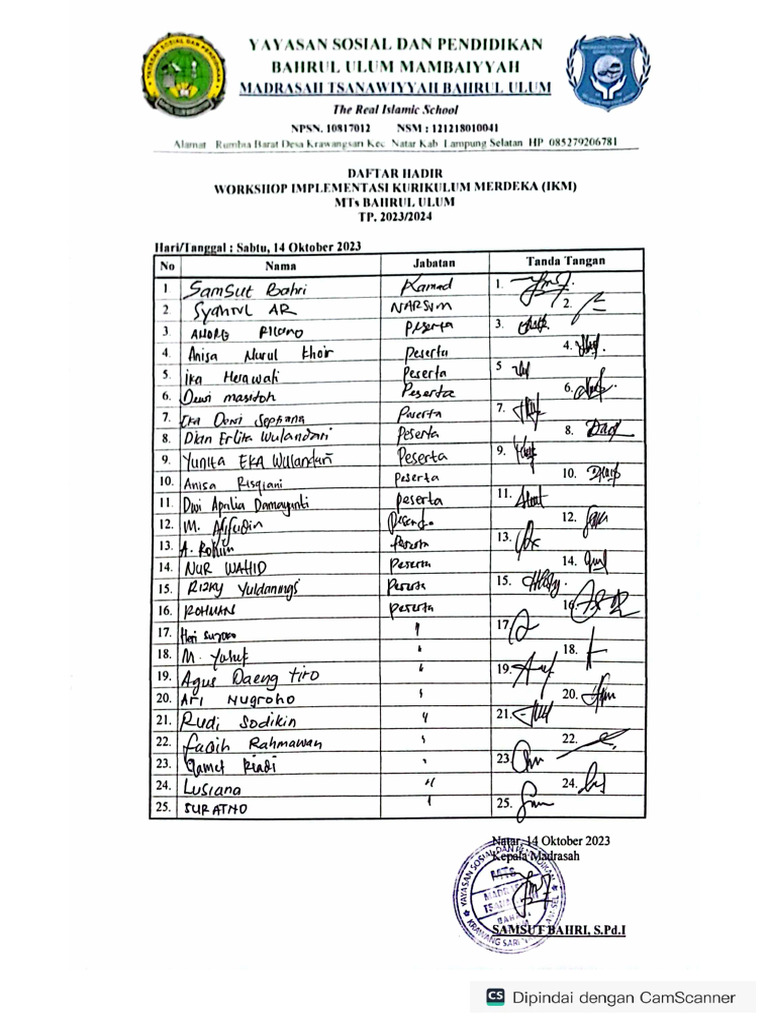 YAYASAN SOSIAL DAN PENDIDIKAN
BAHRUL ULUM MAMBAIYYAH
MADRASAH TSANAWIYYAH BAHRUL ULUM
The Real Islamic School
NPSN. 10817012 NSM : 121218010041
Alamat Rumbia Barat Desa Krawangsari Kec. Natar Kab. Lampung Selatan HP 085279206781
DAFTAR HADIR
WORKSHOP IMPLEMENTASI KURIKULUM MERDEKA (IKM)
MTs BAHRUL ULUM
TP. 2023/2024
Hari/Tanggal : Sabtu, 14 Oktober 2023
No Nama Jabatan Tanda Tangan
1. Samsut Bahri Kamad 1.
2. Syahrul AR NARSUM 2.
3. Peserta 3.
4. Anisa Nurul Khoir Peserta 4.
5. Ika Herawati Peserta 5
6. Dewi masitoh Peserta 6.
7. Ika Dewi Septiana Peserta 7.
8. Dian Erlita Wulandari Peserta 8.
9. Yunita EKA Wulandari Peserta 9.
10. Anisa Risqiani Peserta 10.
11. Dwi Aprilia Damayanti peserta 11.
12. M. Afifudin Peserta 12.
13. A. Rohim Peserta 13.
14. NUR WAHID Peserta 14.
15. Rizky Yuldaningsi Peserta 15.
16. ROHMAN peserta 16.
17. Heri " 17.
18. M. Yusuf " 18.
19. Agus Daeng tiro " 19.
20. Ari Nugroho " 20.
21. Rudi Sodikin " 21.
22. Faqih Rahmawan " 22.
23. Riadi " 23
24. Lusiana " 24.
25. SURATNO " 25.
Natar, 14 Oktober 2023
Kepala Madrasah
SAMSUT BAHRI, S.Pd.I
CS Dipindai dengan CamScanner